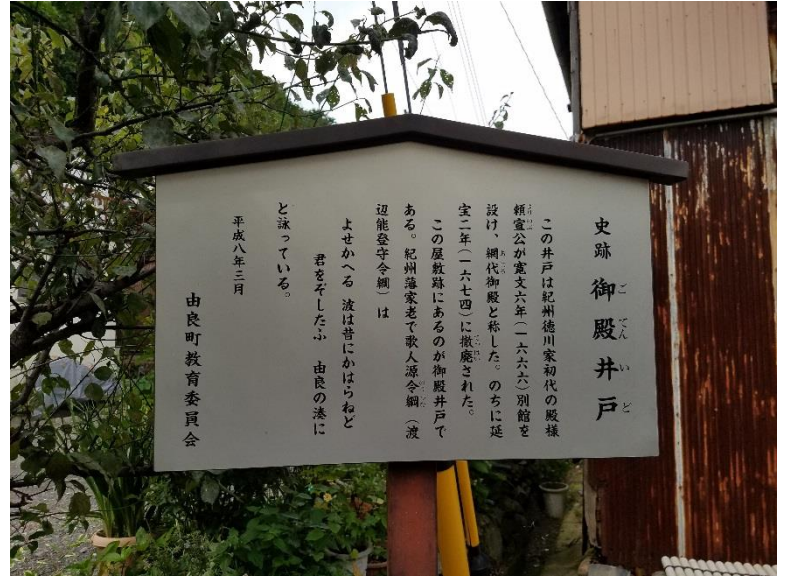 史跡 御殿井戸
ごてんいど
この井戸は紀州徳川家初代の殿様
頼宣公が寛文六年(一六六六)別館を
よりのぶ
設け、網代御殿と称した。のちに延
あじろ
宝二年(一六七四)に撤廃された。
てっぱい
この屋敷跡にあるのが御殿井戸で
ある。紀州藩家老で歌人源令綱(渡
辺能登守令綱)は
よせかへる 波は昔にかはらねど
君をぞしたふ 由良の湊に
と詠っている。
平成八年三月
由良町教育委員会